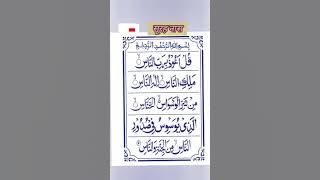 सुरह नास
بِسْمِ اللّٰهِ الرَّحْمٰنِ الرَّحِيْمِ
قُلْ اَعُوْذُ بِرَبِّ النَّاسِ
مَلِكِ النَّاسِ اِلٰهِ النَّاسِ
مِنْ شَرِّ الْوَسْوَاسِ الْخَنَّاسِ
الَّذِيْ يُوَسْوِسُ فِيْ صُدُوْرِ
النَّاسِ مِنَ الْجِنَّةِ وَالنَّاسِ